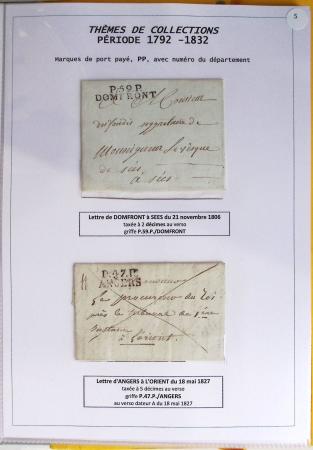 5
THÈMES DE COLLECTIONS
PÉRIODE 1792 -1832
Marques de port payé, PP, avec numéro du département
P.59.P.
DOMFRONT
A Monsieur
de
Monseigneur l'évêque
de séez
à séez
Lettre de DOMFRONT à SEES du 21 novembre 1806
taxée à 2 décimes au verso
griffe P.59.P./DOMFRONT
P.47.P.
ANGERS
Le procureur du Roi
près le tribunal de 1ère
instance
à Lorient
Lettre d'ANGERS à L'ORIENT du 18 mai 1827
taxée à 5 décimes au verso
griffe P.47.P./ANGERS
au verso dateur A du 18 mai 1827